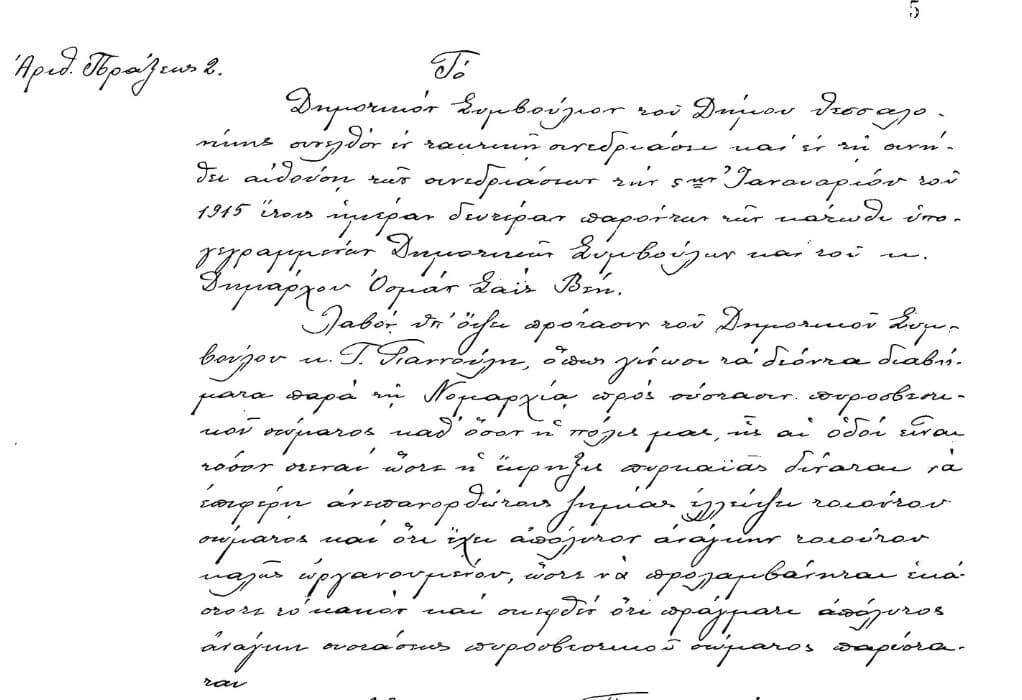 5
Ἀριθ. Πράξεως 2.
Τό
Δημοτικόν Συμβούλιον τοῦ Δήμου Θεσσαλο-
νίκης συνελθόν ἐν τακτικῇ συνεδριάσει καί ἐν τῇ συνή-
θει αἰθούσῃ τῶν συνεδριάσεων τήν 5ην Ἰανουαρίου τοῦ
1915 ἔτους ἡμέραν δευτέραν παρόντων τῶν κάτωθι ὑπο-
γεγραμμένων Δημοτικῶν Συμβούλων καί τοῦ κ.
Δημάρχου Ὀσμάν Σαΐτ Βέη.
Λαβόν ὑπ' ὄψει πρότασιν τοῦ Δημοτικοῦ Συμ-
βούλου κ. Γ. Γιαννούλη, ὅπως γίνωσι τά δέοντα διαβή-
ματα παρά τῇ Νομαρχίᾳ πρός σύστασιν πυροσβεστι-
κοῦ σώματος καθ' ὅσον ἡ πόλις μας, ἧς αἱ ὁδοί εἶναι
τόσον στεναί ὥστε ἡ ἔκρηξις πυρκαϊᾶς δύναται νά
ἐπιφέρῃ ἀνεπανορθώτους ζημίας ἐλλείψει τοιούτου
σώματος καί ὅτι ἔχει ἀπόλυτον ἀνάγκην τοιούτου
καλῶς ὠργανουμένου, ὥστε νά προλαμβάνηται ἑκά-
στοτε τό κακόν καί σκεφθέν ὅτι πράγματι ἀπόλυτος
ἀνάγκη συστάσεως πυροσβεστικοῦ σώματος παρίστα-
ται